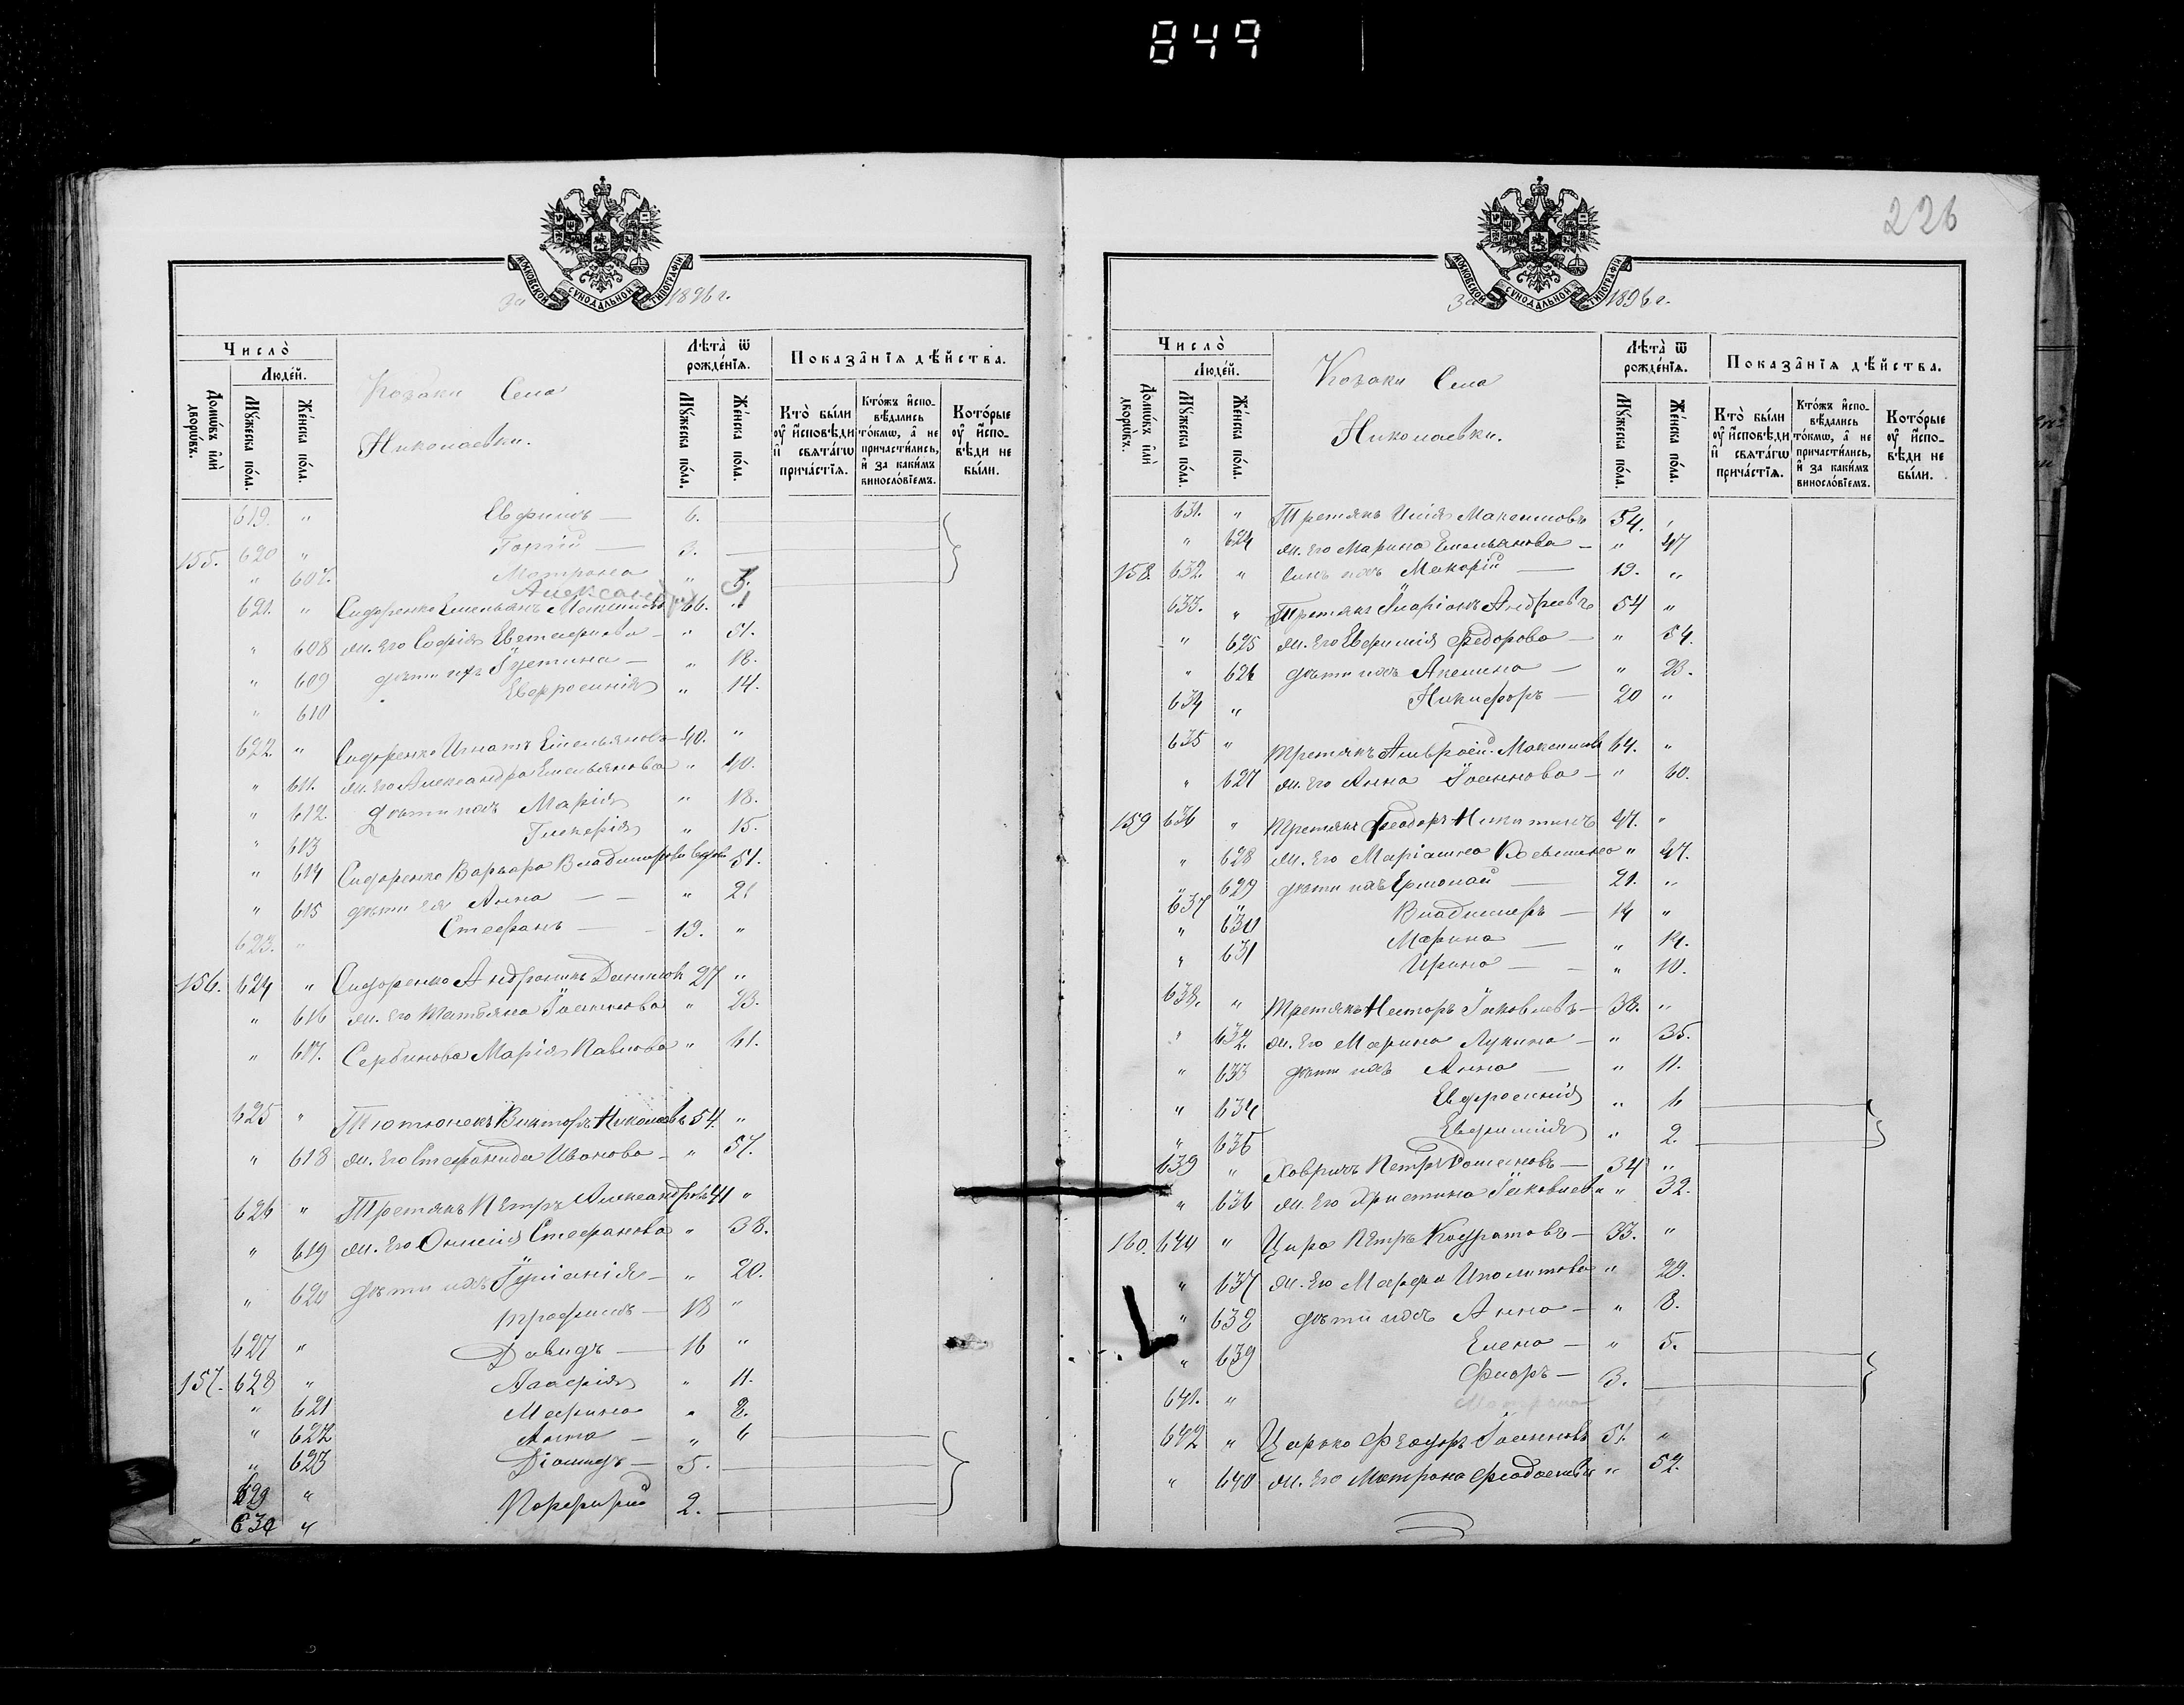 849
226
МОСКОВСКОЙ СѴНОДАЛЬНОЙ ТИПОГРАФІИ
за 1896 г.
Число̀
Людéй.
Домѡ́въ и҆лѝ дворѡ́въ.
Мꙋ́жеска по́ла.
Же́нска по́ла.
Козаки Села
Николаевки.
Лѣта̀ ѿ рожде́нїѧ.
Мꙋ́жеска по́ла.
Же́нска по́ла.
Показа̑нїѧ дѣ́йства.
Кто̀ бы́ли ᲂу҆ и҆сповѣди и҆ свѧта́гѡ причастїѧ.
Кто́жъ и҆сповѣдались то́кмѡ, а҆ не причасти́лись, и҆ за каки́мъ винословїемъ.
Кото́рые ᲂу҆ и҆сповѣди не бы́ли.
619. " Евфимъ — 6.
155. 620 " Горгій — 3.
" 607. Матрона " 3.
Александр 1
621. " Сидоренко Емельянъ 66. "
" 608 ж. его Софія Евстафиева — " 51.
" 609 дѣти ихъ Іустина — " 18.
" 610 Евфросинія " 14.
622 " Сидоренко Игнатъ Емельяновъ 40. "
" 611. ж. его Александра Емельянова " 40.
" 612. дѣти ихъ Марія " 18.
" 613 Гликерія " 15.
" 614 Сидоренко Варвара Владимірова вдова 51.
" 615 дѣти ея Анна — — " 21
623. " Стефанъ — - 19. "
156. 624 " Сидоренко Андроникъ Данилов 27 "
" 616 ж. его Татьяна Іоаннова " 23.
" 617. Сербинова Марія Павлова " 61.
625 " Тютюнекъ Викторъ Николаевъ 54. "
" 618 ж. его Стефанида Иванова — " 57.
626 " Третякъ Петръ Александровъ 41 "
" 619 ж. его Стефанова " 38.
" 620 дѣти ихъ Іуліанія — " 20.
Трофимъ — 18 "
627 " Давидъ — 16 "
157. 628 " " 11.
" 621 Марина " 8.
" 622 Анна — " 6
" 623 Діомидъ — 5.
629 " Порфирій 2.
630 "
МОСКОВСКОЙ СѴНОДАЛЬНОЙ ТИПОГРАФІИ
за 1896 г.
Число̀
Людéй.
Домѡ́въ и҆лѝ дворѡ́въ.
Мꙋ́жеска по́ла.
Же́нска по́ла.
Козаки Села
Николаевки.
Лѣта̀ ѿ рожде́нїѧ.
Мꙋ́жеска по́ла.
Же́нска по́ла.
Показа̑нїѧ дѣ́йства.
Кто̀ бы́ли ᲂу҆ и҆сповѣди и҆ свѧта́гѡ причастїѧ.
Кто́жъ и҆сповѣдались то́кмѡ, а҆ не причасти́лись, и҆ за каки́мъ винословїемъ.
Кото́рые ᲂу҆ и҆сповѣди не бы́ли.
631. " Третякъ Илія Максимовъ 54. "
" 624 ж. его Марина Емельянова — " 47
158. 632. " сынъ ихъ Макарій — 19. "
633. " Третякъ Иларіонъ Андреевъ 54 "
" 625 ж. его Евфимія Федорова — " 54.
" 626 дѣти ихъ Акелина — " 23.
634 " Никифоръ — 20 "
635 " Третякъ Амвросій Максимовъ 64. "
" 627 ж. его Анна Іоаннова — " 60.
159 636 " Третякъ Феодоръ Никитинъ 47. "
" 628 ж. его Маріамна Косьмина " 47.
" 629 дѣти ихъ Ермолай — 21. "
637 " Владимиръ — 14 "
" 630 Марина — " 14.
" 631 Ирина — — " 10.
638. " Третякъ Несторъ Іаковлевъ — 38. "
" 632. ж. его Марина Лукина — " 35.
" 633 дѣти ихъ Анна — " 11.
" 634 Евфросинія " 6
" 635 Евфимія " 2.
639 " Ховричъ Петръ — 34 "
" 636 ж. его Христина Іаковлева " 32.
160. 640 " Цира Петръ Кодратовъ — 33. "
" 637 ж. его Марфа Иполитова " 29.
" 638 дѣти ихъ Анна — " 8.
" 639 Елена — " 5.
641. " Флоръ — 3.
642 " Царько Феодоръ Іоанновъ 51. "
" 640 ж. его Матрона Феодосиева " 52.